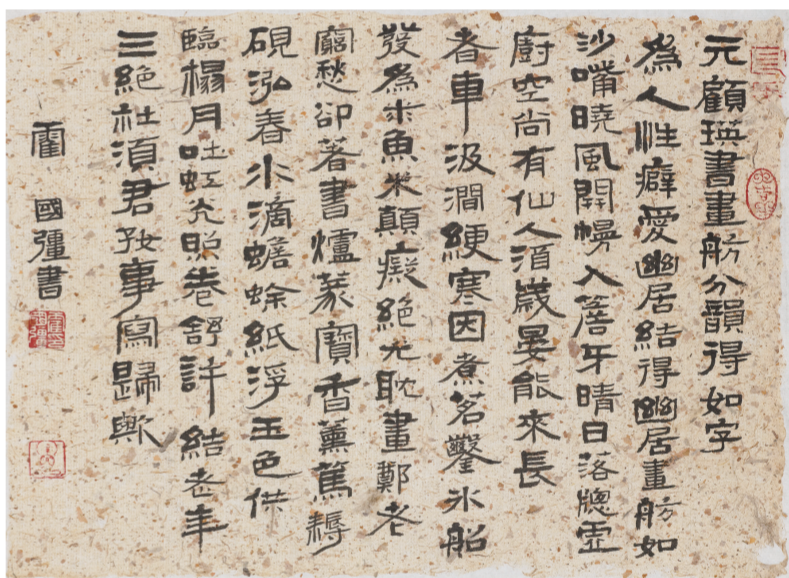 元顧瑛書畫舫分韻得如字
為人性癖愛幽居結得幽居畫舫如
沙嘴曉風開幔入簷牙晴日落牕虛
廚空尚有仙人酒歲晏能來長
者車汲澗綆寒因煮茗鑿冰船
發為求魚米顛癡絕尤耽畫鄭老
窮愁卻著書爐篆寶香薰篤耨
硯泓春水滴蟾蜍紙浮玉色供
臨榻月吐虹光照卷舒許結老年
三絕社須君好事寫歸歟
霍國彊書